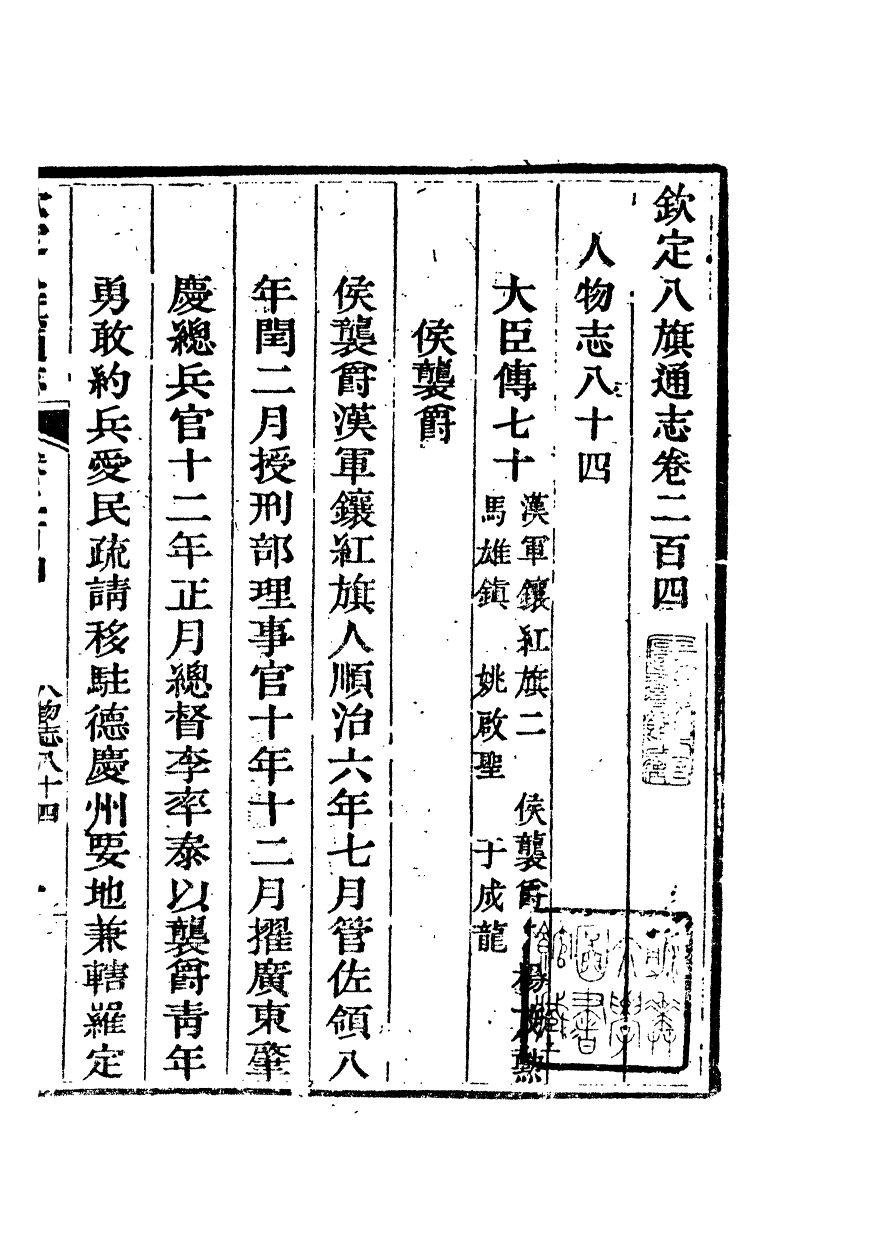 欽定八旗通志卷二百四
人物志八十四
大臣傳七十
漢軍鑲紅旗二 侯襲爵 楊
馬雄鎮 姚啟聖 于成龍
侯襲爵
侯襲爵漢軍鑲紅旗人順治六年七月管佐領八
年閏二月授刑部理事官十年十二月擢廣東肇
慶總兵官十二年正月總督李率泰以襲爵靑年
勇敢約兵愛民疏請移駐德慶州要地兼轄羅定
人物志八十四